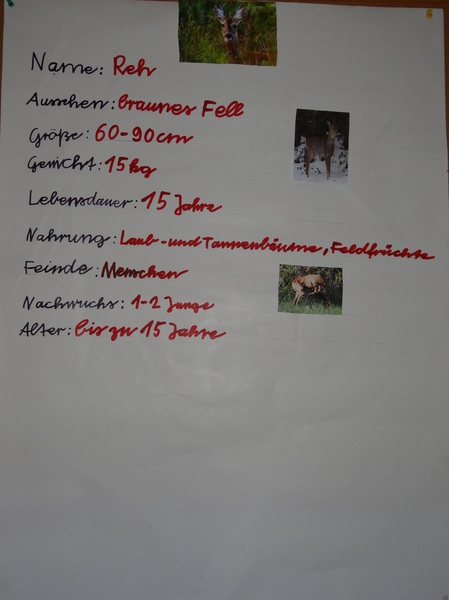 Name: Reh
Aussehen: braunes Fell
Größe: 60-90cm
Gewicht: 15kg
Lebensdauer: 15 Jahre
Nahrung: Laub-und Tannenbäume, Feldfrüchte
Feinde: Menschen
Nachwuchs: 1-2 Junge
Alter: bis zu 15 Jahre